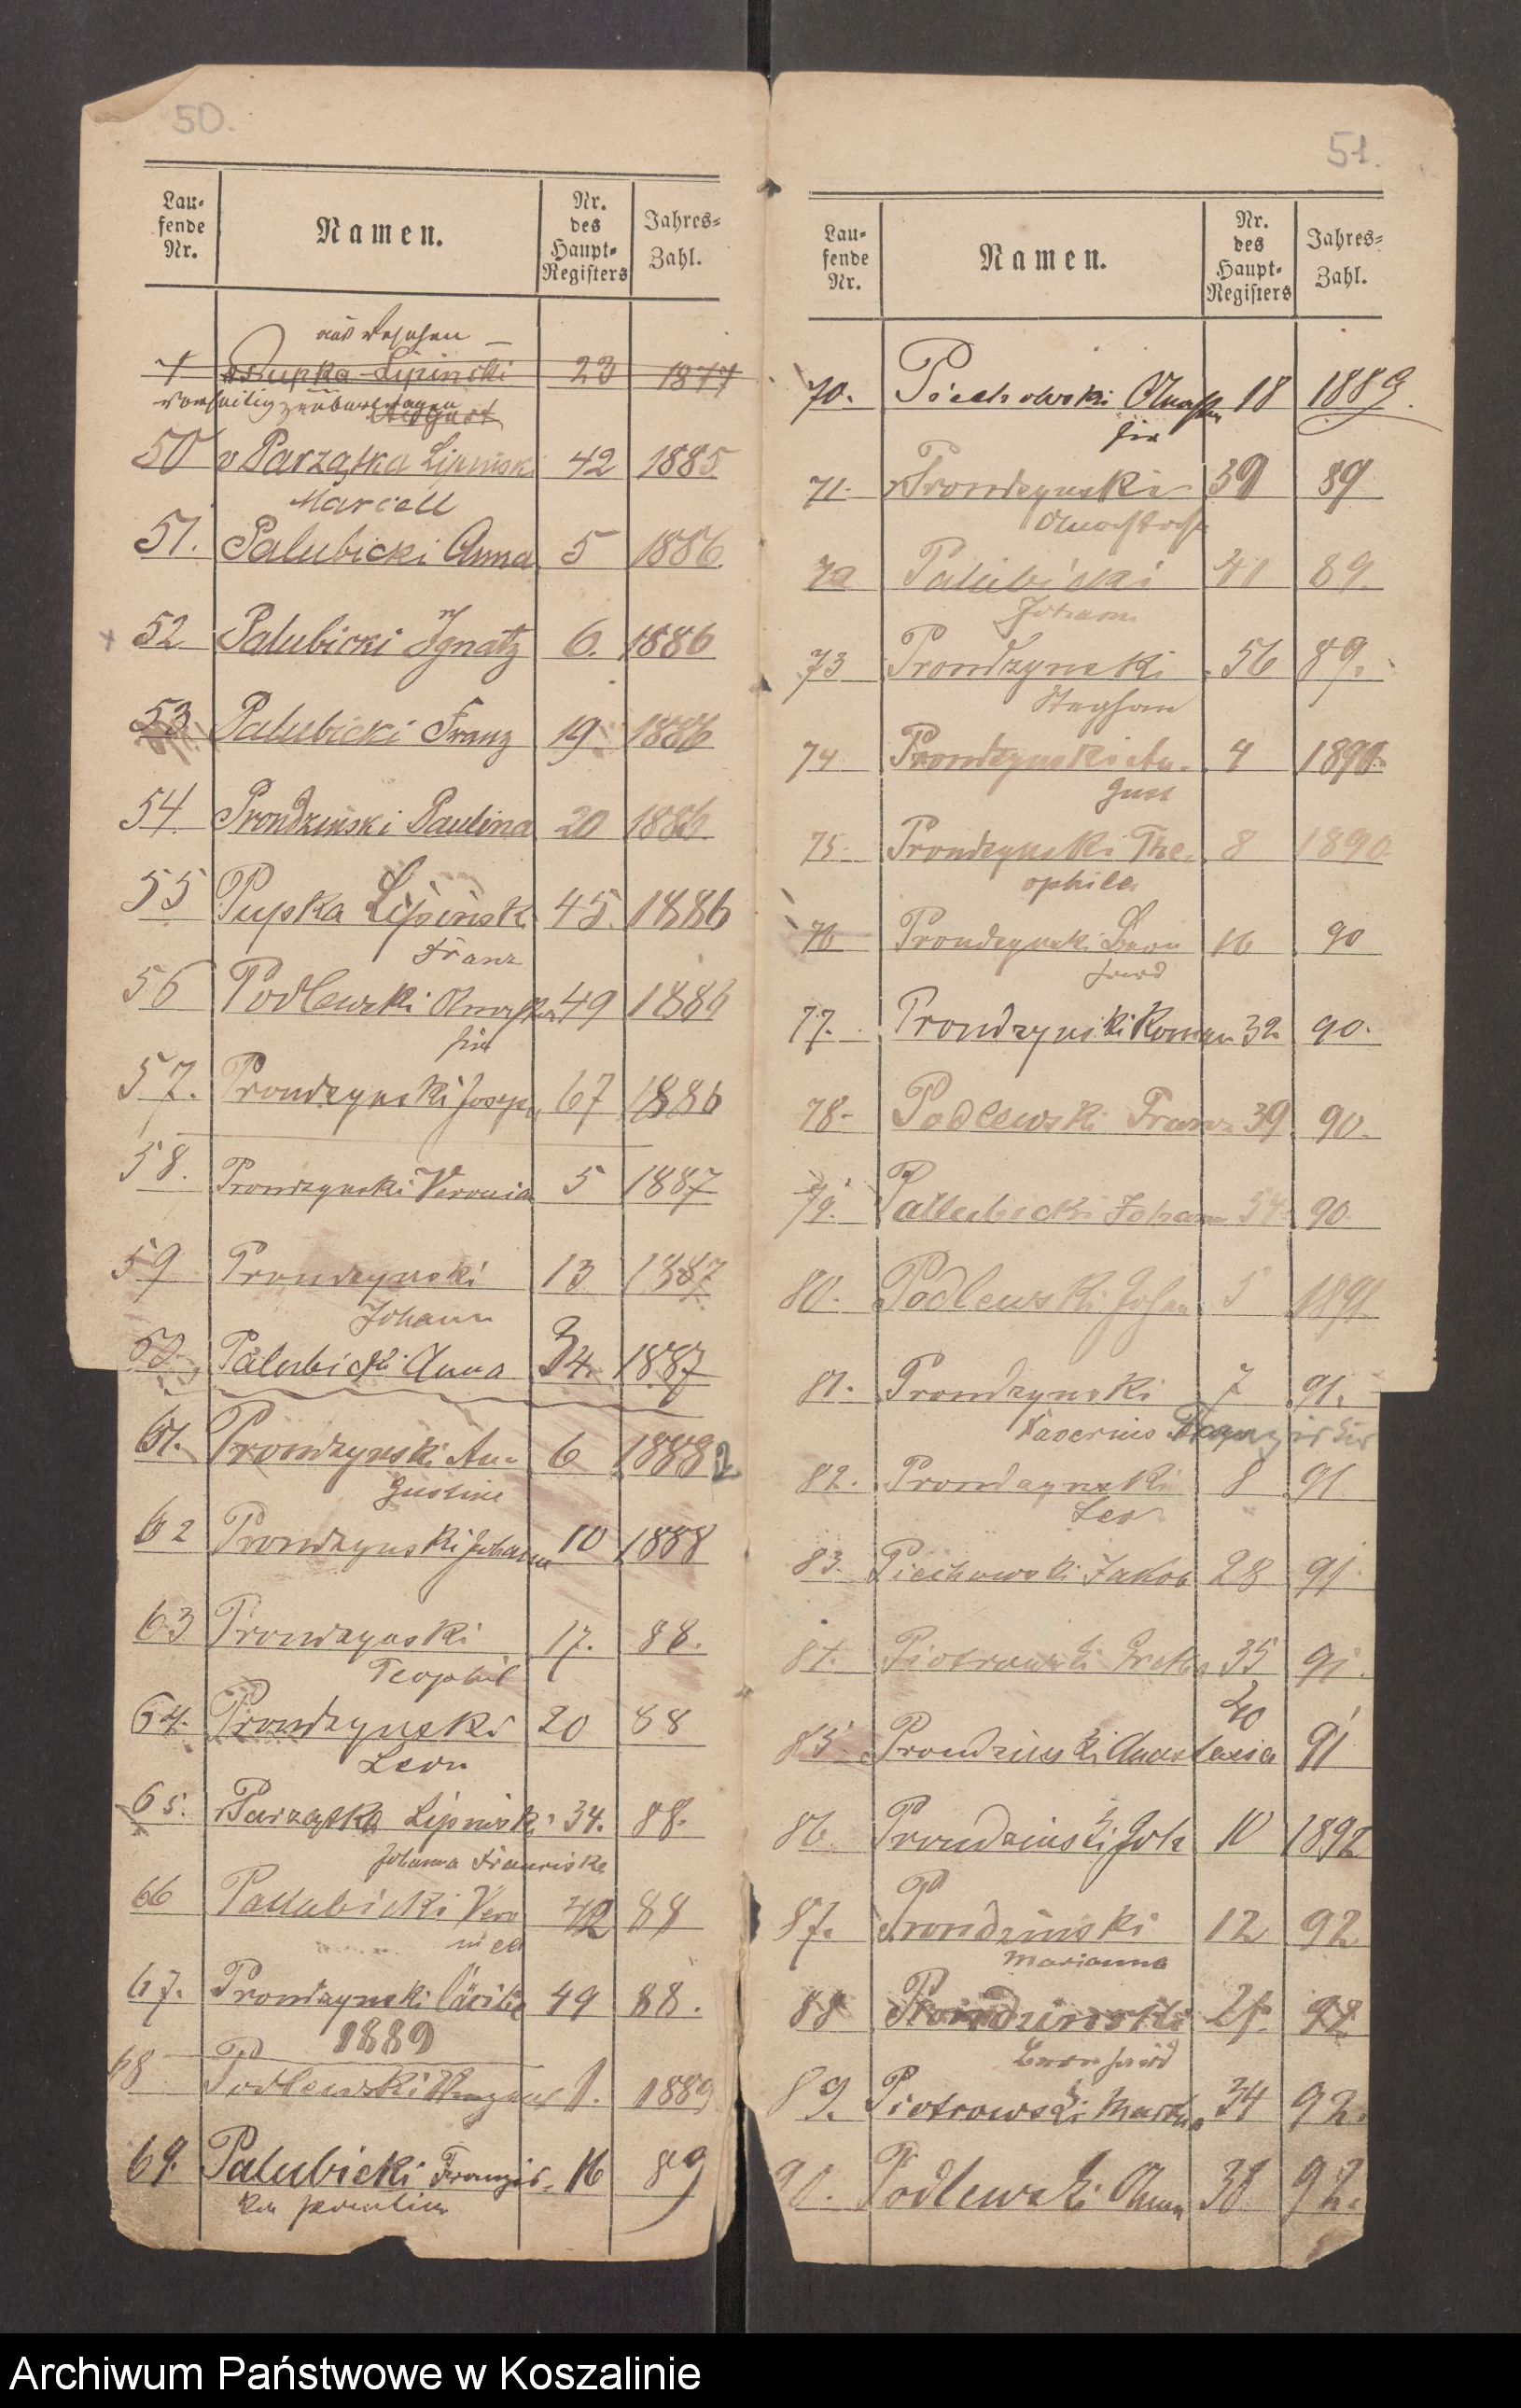 50.
Lau-
fende
Nr.
Namen.
Nr.
des
Haupt-
Registers
Jahres-
Zahl.
Pupka Lipinski 23 1877
August
50 v Parzątka Lipinski 42 1885
Marcell
51. Palubicki Anna 5 1886
52 Palubicki Ignatz 6. 1886
53 Palubicki Franz 19 1886
54. Prondzinski Paulina 20 1886
55 Pupka Lipinski 45. 1886
Franz
56 Podlewski 49 1886
57. Prondzynski Joseph 67 1886
58. Prondzynski Veronica 5 1887
59 Prondzynski 13 1887
Johann
Palubicki Anna 34. 1887
61. Prondzynski Au- 6 1888
gustine
62 Prondzynski Johann 10 1888
63 Prondzynski 17. 88.
Teophil
64. Prondzynski 20 88
Leon
65. v Parzątka Lipinski 34. 88.
Johanna Franciska
66 Pallubicki Vero 42 88
nica
67. Prondzynski Cäcilie 49 88.
1889
68 Podlewski 1. 1889
69. Palubicki Franzis- 16 89
ka
51.
Lau-
fende
Nr.
Namen.
Nr.
des
Haupt-
Registers
Jahres-
Zahl.
70. Piechowski 18 1889.
71. v Prondzynski 39 89
72 Palubicki 41 89.
Johann
73 Prondzynski 56 89.
Stephan
74 Prondzynski Au- 4 1890.
gust
75. Prondzynski The- 8 1890.
ophila
76 Prondzynski Bern 16 90
hard
77. Prondzynski Roman 32 90.
78. Podlewski Franz 39 90.
79. Pallubicki Johann 54 90.
80. Podlewski Johann 5 1891.
81. Prondzynski 7 91.
Xaverius
82. Prondzynski 8 91
Leo
83. Piechowski Jakob 28 91.
84. Piotrowski 35 91.
40
85. Prondzinski Anastasia 91
86. Prondzinski Joh 10 1892
87. Prondzinski 12 92
Marianna
88 Prondzinski 92
Bernhard
89. Piotrowski Martha 34 92.
90. Podlewski Anna 38 92.
Archiwum Państwowe w Koszalinie